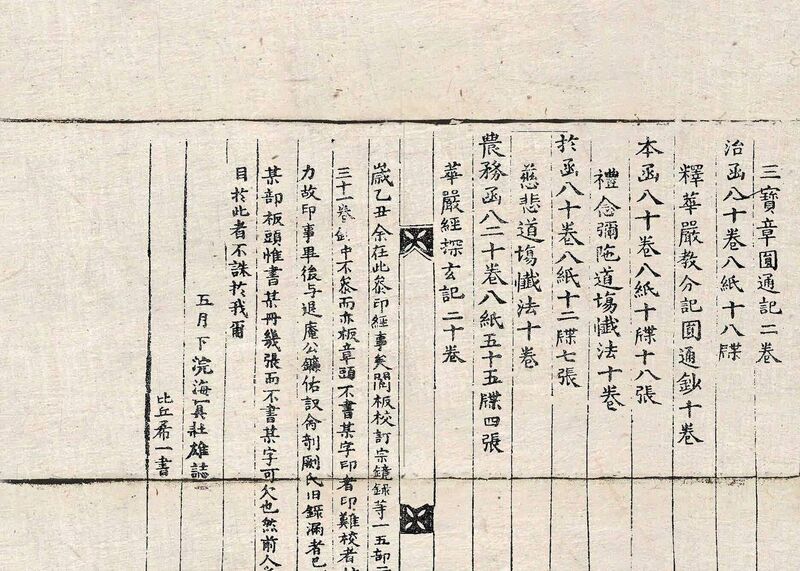 三寶章圓通記二卷
治函八十卷八紙十八牒
釋華嚴教分記圓通鈔十卷
本函八十卷八紙十牒十八張
禮念彌陁道塲懺法十卷
於函八十卷八紙十二牒七張
慈悲道塲懺法十卷
農務函八二十卷八紙五十五牒四張
華嚴經探玄記二十卷
歲乙丑余在此叅印經事矣閱板校訂宗鏡錄等一五部二
三十一卷 中不叅而亦板章頭不書某字印者印難校者
力故印事畢後与退庵公鐮佑 命剞劂氏旧錄漏者
某部板頭惟書某冊幾張而不書某字可欠也然前人
目於此者不誅於我爾
五月下浣海冥壯雄誌
比丘希一書